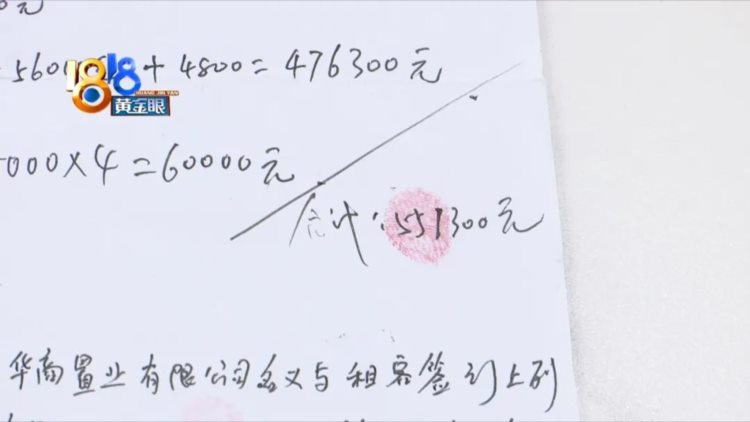 元
5600 + 4800 = 476300元
1818
HUANG JIN YAN
黄金眼
000×4=60000元
合计:551300元
华商置业有限公司名义与租客签订上列